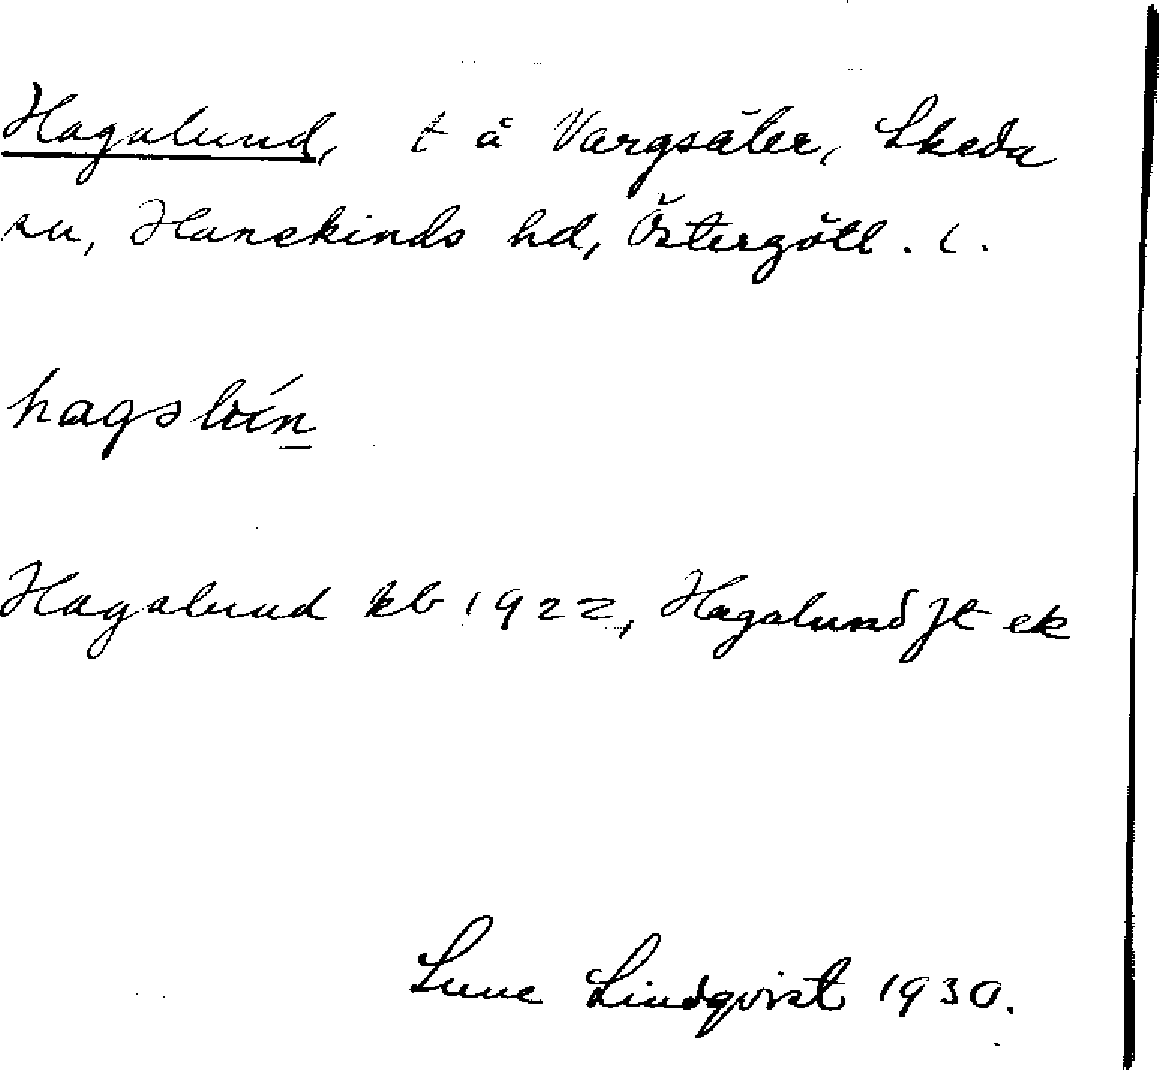 Hagalund, t å Vargsäter, Skeda
sn, Hanekinds hd, Östergötl. l.
Hagalund kb 1922, Hagalund Jt ek
Sune Lindqvist 1930.